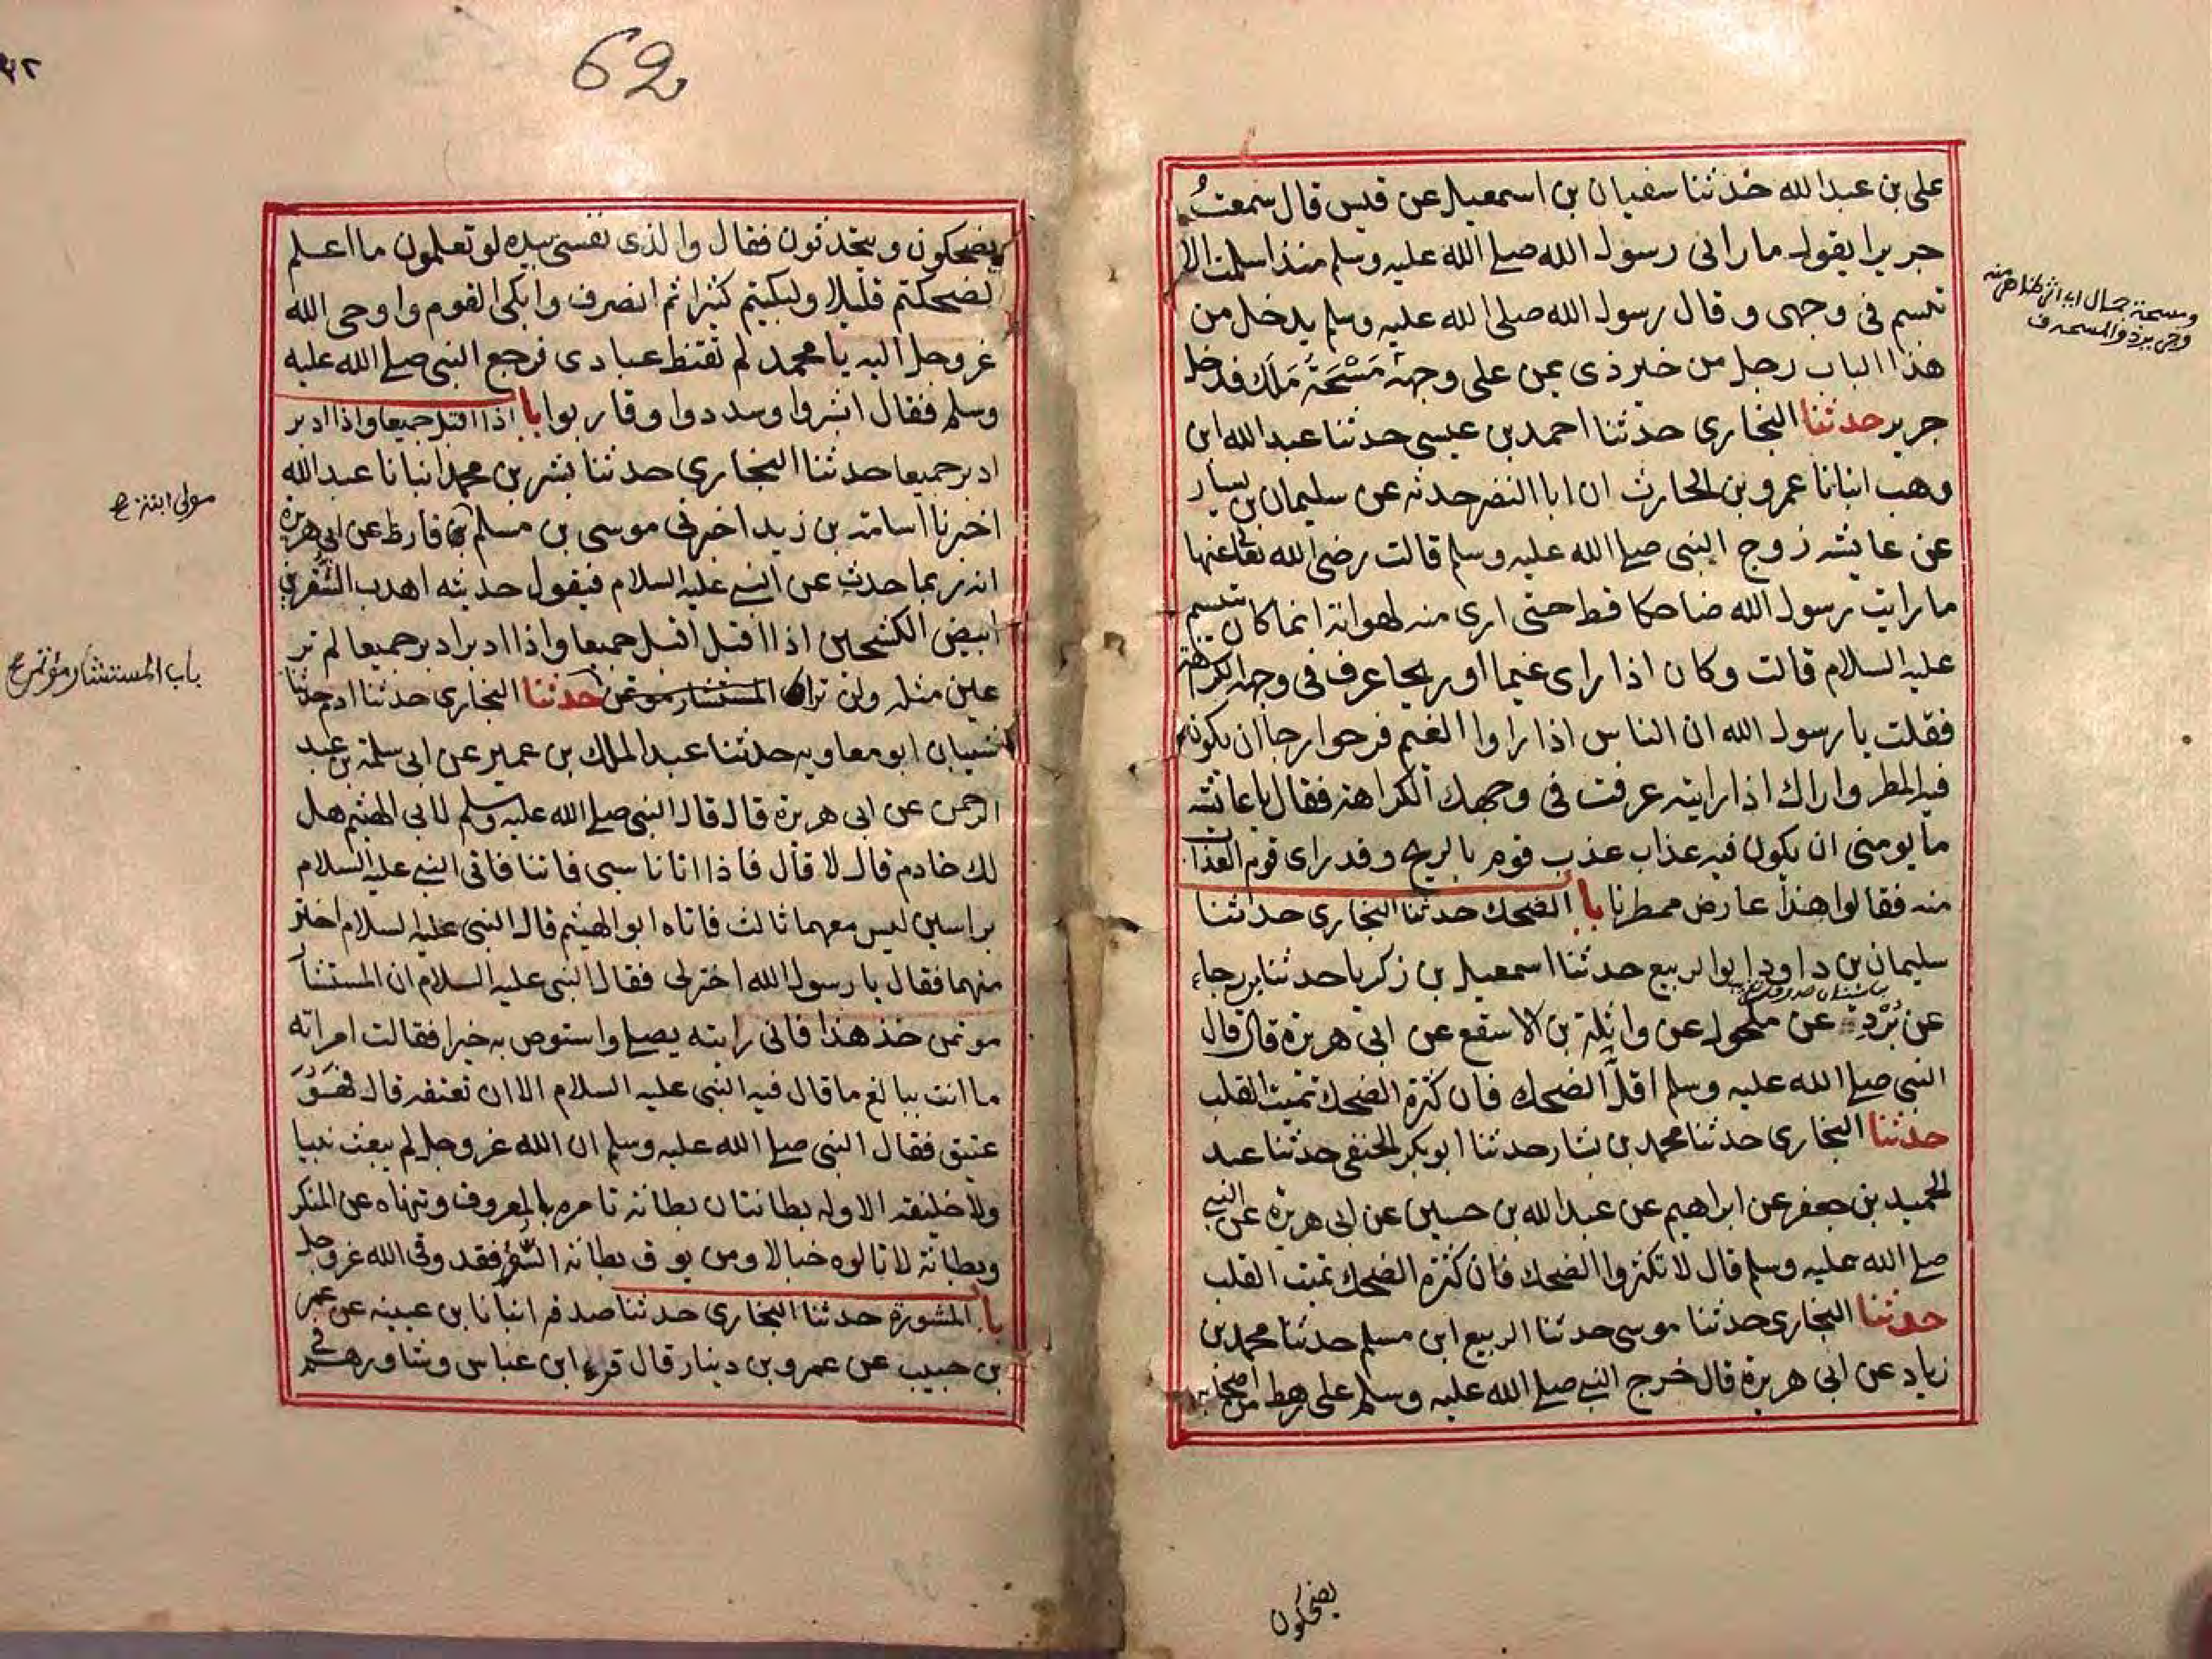 على بن عبد الله حدثنا سفيان بن اسمعيل عن قيس قال سمعت
جريرا يقول ما رانى رسول الله صلى الله عليه وسلم منذ اسلمت الا
تبسم فى وجهى وقال رسول الله صلى الله عليه وسلم يدخل من
هذا الباب رجل من خير ذى يمن على وجهه مَسْحَة مَلَك فدخل
جرير حدثنا البخارى حدثنا احمد بن عيسى حدثنا عبد الله ابن
وهب انبانا عمرو بن الحارث ان ابا النضر حدثه عن سليمان بن يسار
عن عايشه زوج النبى صلى الله عليه وسلم قالت رضى الله تعا عنها
ما رايت رسول الله ضاحكا قط حتى ارى منه لهواته انما كان يتبسم
عليه السلام قالت وكان اذا راى غيما او ريحا عرف فى وجهه الكراهة
فقلت يا رسول الله ان الناس اذا راوا الغيم فرحوا رجا ان يكون
فيه المطر واراك اذا رايته عرفت فى وجهك الكراهة فقال يا عائشه
ما يومنى ان يكون فيه عذاب عذب قوم بالريح وقد راى قوم العذاب
منه فقالوا هذا عارض ممطرنا باب الضحك حدثنا البخارى حدثنا
سليمان بن داود ابو الربيع حدثنا اسمعيل بن زكريا حدثنا ابو رجاء
عن بُرْد عن مكحول عن واثلة بن الاسقع عن ابى هريرة قال قال
النبى صلى الله عليه وسلم اقل الضحك فان كثرة الضحك تميت القلب
حدثنا البخارى حدثنا محمد بن بشار حدثنا ابو بكر الحنفى حدثنا عبد
الحميد بن جعفر عن ابراهيم عن عبد الله بن حسين عن ابى هريرة عن النبى
صلى الله عليه وسلم قال لا تكثروا الضحك فان كثرة الضحك تميت القلب
حدثنا البخارى حدثنا موسى حدثنا الربيع ابن مسلم حدثنا محمد بن
زياد عن ابى هريرة قال خرج النبى صلى الله عليه وسلم على رهط من اصحابه
يضحكون
62
يضحكون ويتحدثون فقال والذى نفسى بيده لو تعلمون ما اعلم
لضحكتم قليلا ولبكيتم كثيرا ثم انصرف وابكى القوم واوحى الله
عز وجل اليه يا محمد لم تقنط عبادى فرجع النبى صلى الله عليه
وسلم فقال ابشروا وسددوا وقاربوا باب اذا اقبل جميعا واذا ادبر
ادبر جميعا حدثنا البخارى حدثنا بشر بن محمد انبانا عبد الله
اخبرنا اسامة بن زيد اخبرنى موسى بن مسلم بن قارظ عن ابى هريرة
انه ربما حدث عن النبى عليه السلام فيقول حدثنيه اهدب الشفرين
ابيض الكشحين اذا اقبل اقبل جميعا واذا ادبر ادبر جميعا لم تر
عين مثله ولن تراه المستشار موتمن حدثنا البخارى حدثنا ادم حدثنا
شيبان ابو معاويه حدثنا عبد الملك بن عمير عن ابى سلمة بن عبد
الرحمن عن ابى هريرة قال قال النبى صلى الله عليه وسلم لابى الهيثم هل
لك خادم قال لا قال فاذا اتانا سبى فاتنا فاتى النبى عليه السلام
براسين ليس معهما ثالث فاتاه ابو الهيثم قال النبى عليه السلام اختر
منهما فقال يا رسول الله اختر لى فقال النبى عليه السلام ان المستشار
موتمن خذ هذا فانى رايته يصلى واستوص به خيرا فقالت امراته
ما انت ببالغ ما قال فيه النبى عليه السلام الا ان تعتقه قال فهو
عتيق فقال النبى صلى الله عليه وسلم ان الله عز وجل لم يبعث نبيا
ولا خليفة الا وله بطانتان بطانة تامره بالمعروف وتنهاه عن المنكر
وبطانة لا تالوه خبالا ومن يوق بطانة الشر فقد وقى الله عز وجل
باب المشورة حدثنا البخارى حدثنا صدقه انبانا بن عيينه عن عمر
بن حبيب عن عمرو بن دينار قال قرء ابن عباس وشاورهم فى
مولى ابنة ح
باب المستشار مؤتمن ح